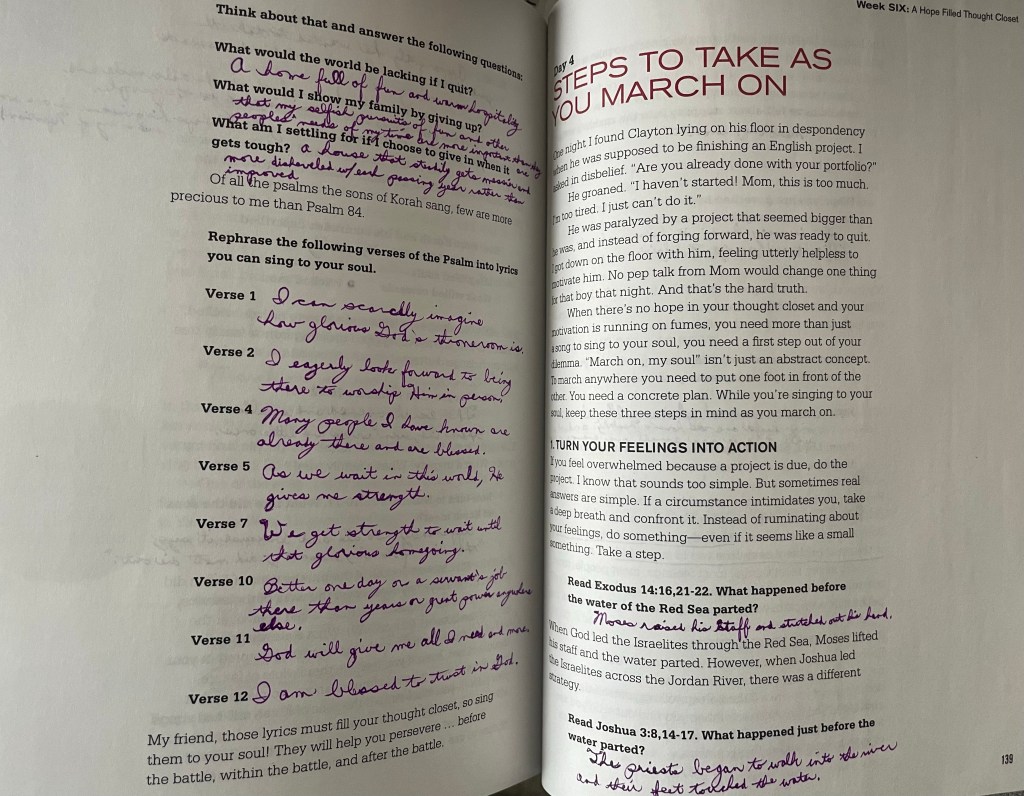 Think about that and answer the following questions:
What would the world be lacking if I quit?
A home full of fun and warm hospitality
What would I show my family by giving up?
that my selfish pursuits of fun and other
peoples' needs of my time are more important than
What am I settling for if I choose to give in when it
gets tough? a house that steadily gets messier and
more disheveled w/each passing year rather than
improved
Of all the psalms the sons of Korah sang, few are more
precious to me than Psalm 84.
Rephrase the following verses of the Psalm into lyrics
you can sing to your soul.
Verse 1 I can scarcely imagine
how glorious God's throneroom is.
Verse 2 I eagerly look forward to being
there to worship Him in person.
Verse 4 Many people I have known are
already there and are blessed.
Verse 5 As we wait in this world, He
gives me strength.
Verse 7 We get strength to wait until
that glorious homegoing.
Verse 10 Better one day on a servant's job
there than years or great power anywhere
else.
Verse 11 God will give me all I need and more.
Verse 12 I am blessed to trust in God.
My friend, those lyrics must fill your thought closet, so sing
them to your soul! They will help you persevere ... before
the battle, within the battle, and after the battle.
Week SIX: A Hope Filled Thought Closet
Day 4
STEPS TO TAKE AS
YOU MARCH ON
One night I found Clayton lying on his floor in despondency
when he was supposed to be finishing an English project. I
asked in disbelief. "Are you already done with your portfolio?"
He groaned. "I haven't started! Mom, this is too much.
I'm too tired. I just can't do it."
He was paralyzed by a project that seemed bigger than
he was, and instead of forging forward, he was ready to quit.
I got down on the floor with him, feeling utterly helpless to
motivate him. No pep talk from Mom would change one thing
for that boy that night. And that's the hard truth.
When there's no hope in your thought closet and your
motivation is running on fumes, you need more than just
a song to sing to your soul, you need a first step out of your
dilemma. "March on, my soul" isn't just an abstract concept.
To march anywhere you need to put one foot in front of the
other. You need a concrete plan. While you're singing to your
soul, keep these three steps in mind as you march on.
1. TURN YOUR FEELINGS INTO ACTION
If you feel overwhelmed because a project is due, do the
project. I know that sounds too simple. But sometimes real
answers are simple. If a circumstance intimidates you, take
a deep breath and confront it. Instead of ruminating about
your feelings, do something—even if it seems like a small
something. Take a step.
Read Exodus 14:16,21-22. What happened before
the water of the Red Sea parted?
Moses raised his staff and stretched out his hand.
When God led the Israelites through the Red Sea, Moses lifted
his staff and the water parted. However, when Joshua led
the Israelites across the Jordan River, there was a different
strategy.
Read Joshua 3:8,14-17. What happened just before the
water parted?
The priests began to walk into the river
and their feet touched the water.
139